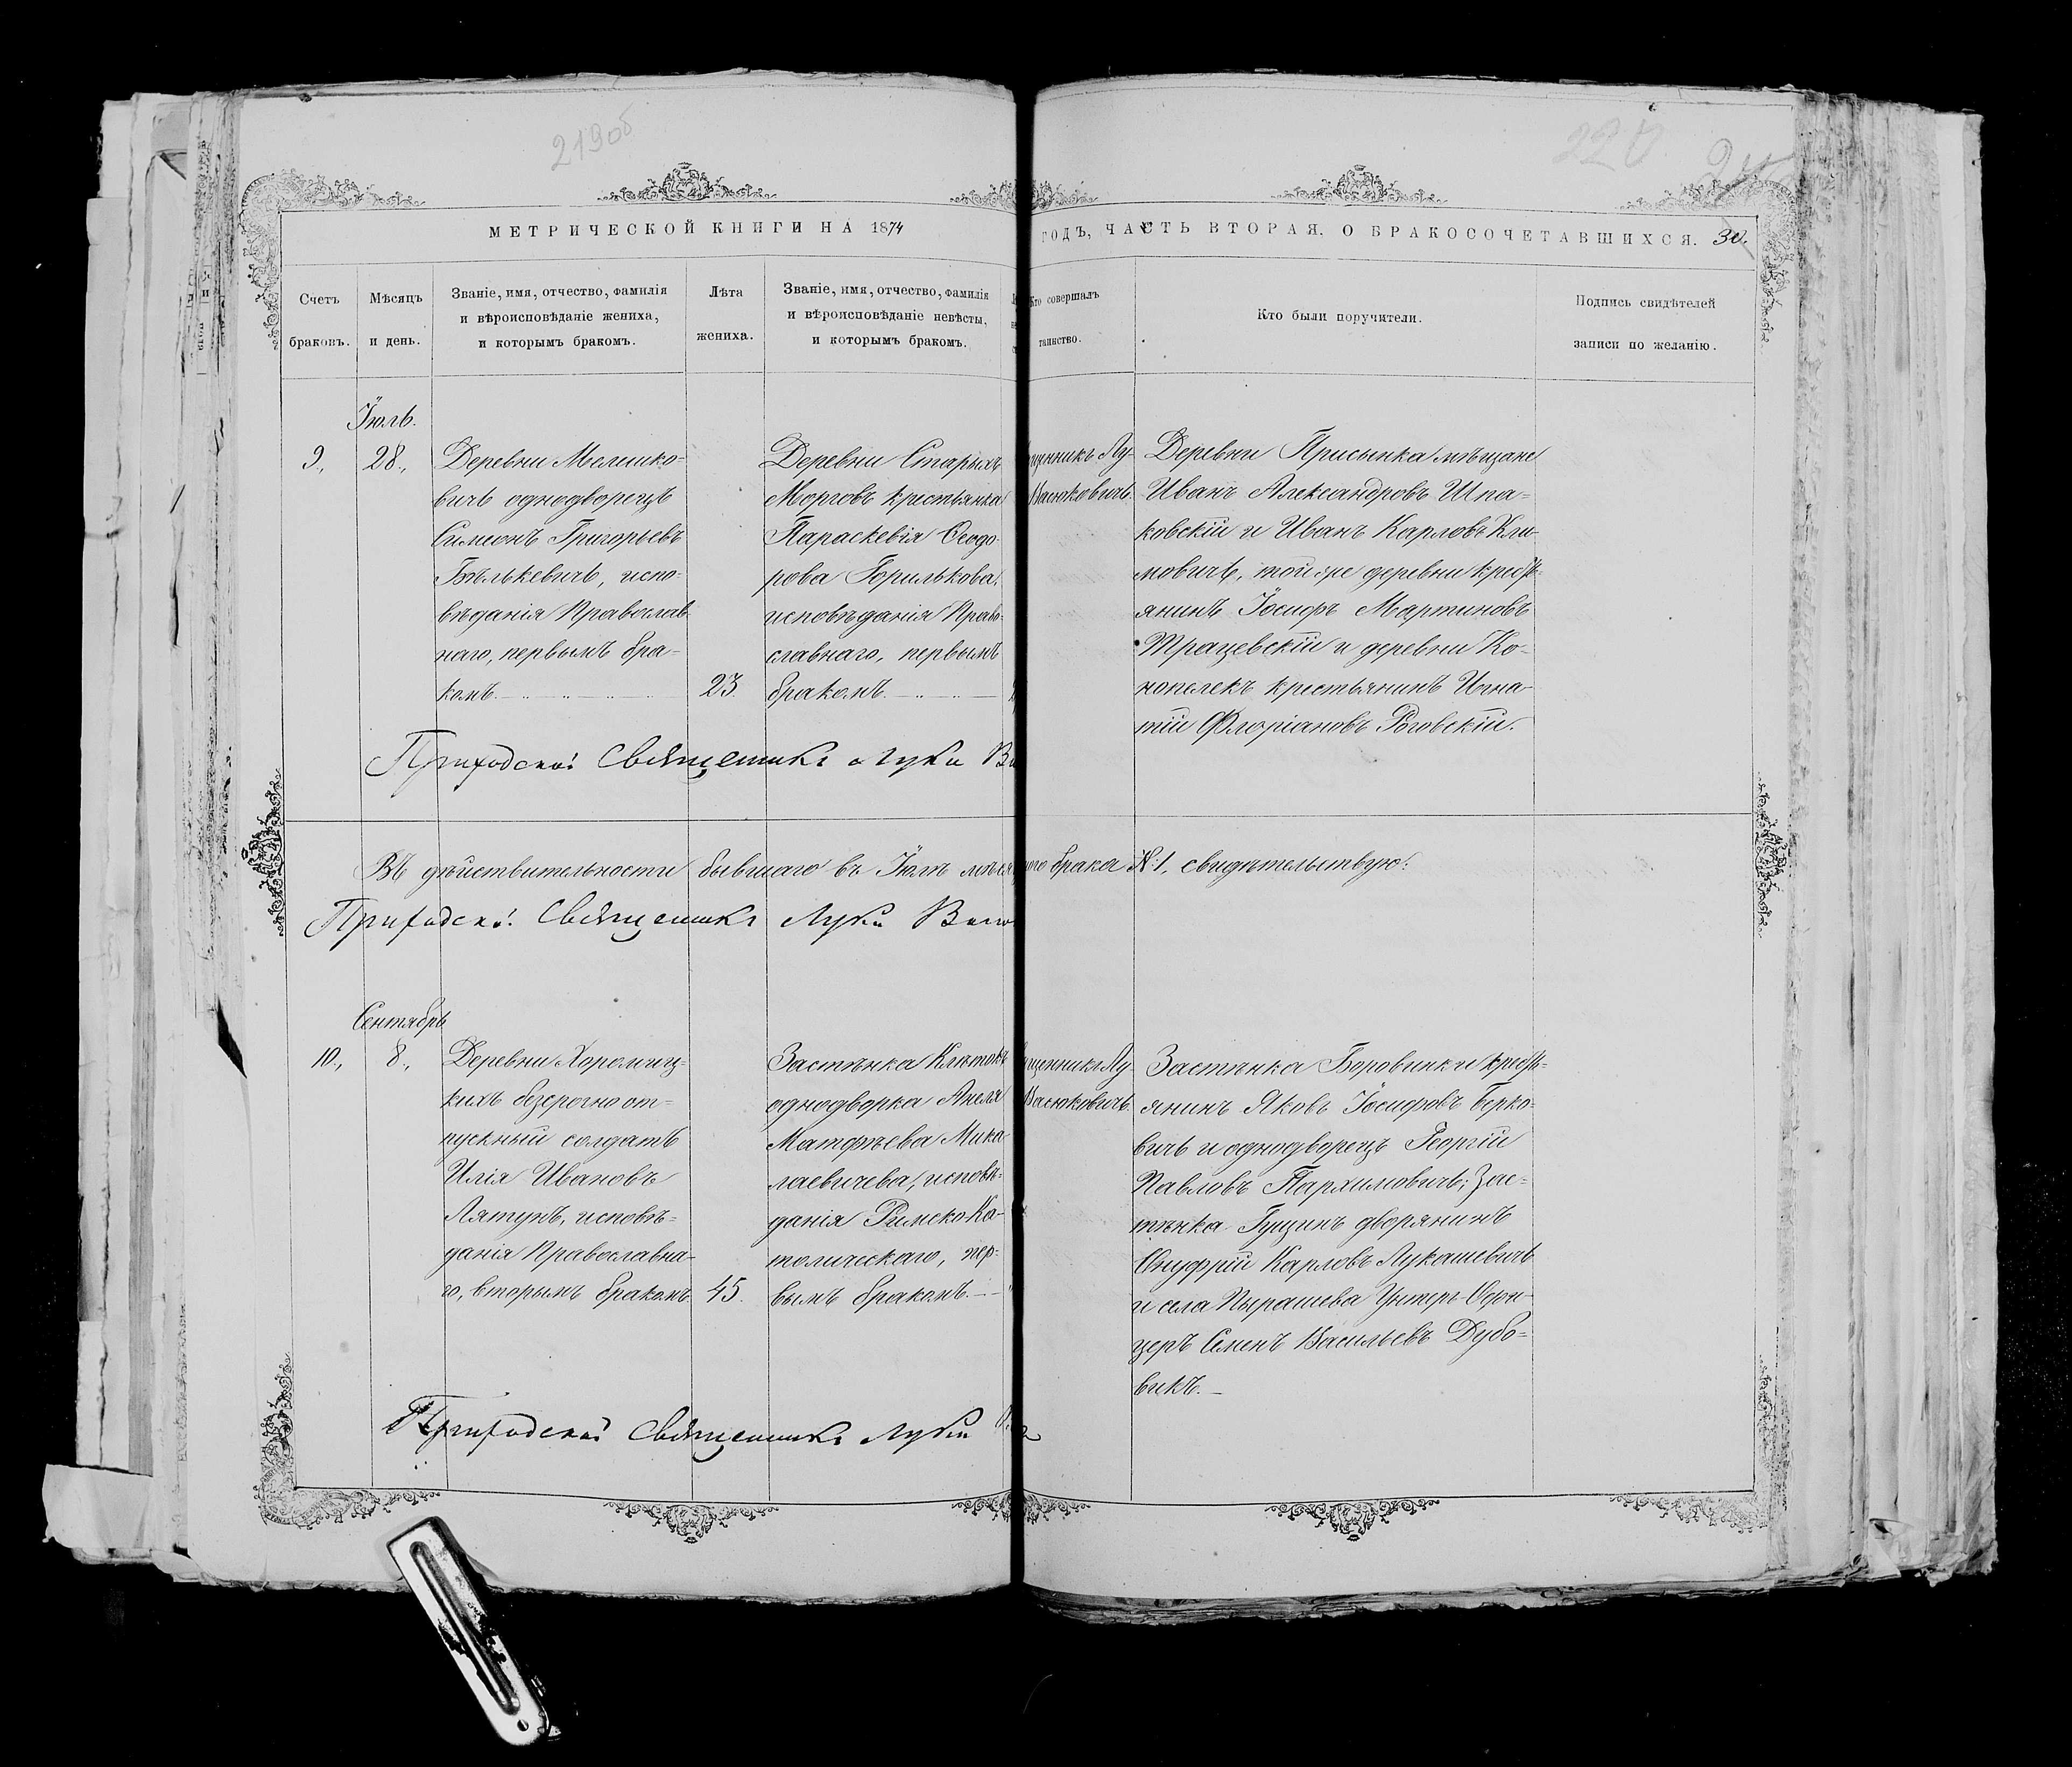 219об
220
МЕТРИЧЕСКОЙ КНИГИ НА 1874
ГОДЪ, ЧАСТЬ ВТОРАЯ, О БРАКОСОЧЕТАВШИХСЯ. 30.
Счетъ браковъ.
Мѣсяцъ и день.
Званіе, имя, отчество, фамилія
и вѣроисповѣданіе жениха,
и которымъ бракомъ.
Лѣта
жениха.
Званіе, имя, отчество, фамилія
и вѣроисповѣданіе невѣсты,
и которымъ бракомъ.
Кто совершалъ
таинство.
Кто были поручители.
Подпись свидѣтелей
записи по желанію.
Іюль.
9., 28.,
Деревни Мелешко-
вичъ однодворецъ
Симеонъ Григорьевъ
Бѣлькевичъ, испо-
вѣданія Православ
наго, первымъ бра-
комъ.
23.
Деревни Старыхъ
Морговъ крестьянка
Параскевія Ѳеодо-
рова Горилькова,
исповѣданія Право-
славнаго, первымъ
бракомъ.
щенникъ Лу-
Васюковичъ.
Деревни Присынка мѣщане
Иванъ Александровъ Шпа-
ковскій и Иванъ Карловъ Кли-
мовичъ, той же деревни кресть-
янинъ Іосифъ Мартиновъ
Трацевскій и деревни Ко-
нопелекъ крестьянинъ Игна-
тій Флоріановъ Роговскій.
Приходской Священникъ Лука
Въ дѣйствительности бывшаго въ Іюлѣ мѣся
ного брака №1, свидѣтельствую:
Приходской Священникъ Лука Васю
Сентябрь
10., 8.,
Деревни Хоромиц-
кихъ безсрочно от-
пускный солдатъ
Илія Ивановъ
Лятунъ, исповѣ-
данія Православна-
го, вторымъ бракомъ
45.
Застѣнка Клѣтокъ
однодворка Анеля
Матфѣева Мика-
лаевичева, исповѣ-
данія Римско-Ка-
толическаго, пер-
вымъ бракомъ.
щенникъ Лу-
Васюковичъ.
Застѣнка Боровинки кресть-
янинъ Яковъ Іосифовъ Берко-
вичъ и однодворецъ Георгій
Павловъ Пархимовичъ; Зас-
тѣнка Гущинъ дворянинъ
Онуфрій Карловъ Лукашевичъ
и села Пырашева Унтеръ-Офи-
церъ Семенъ Васильевъ Дубо-
викъ.
Приходской Священникъ Лука